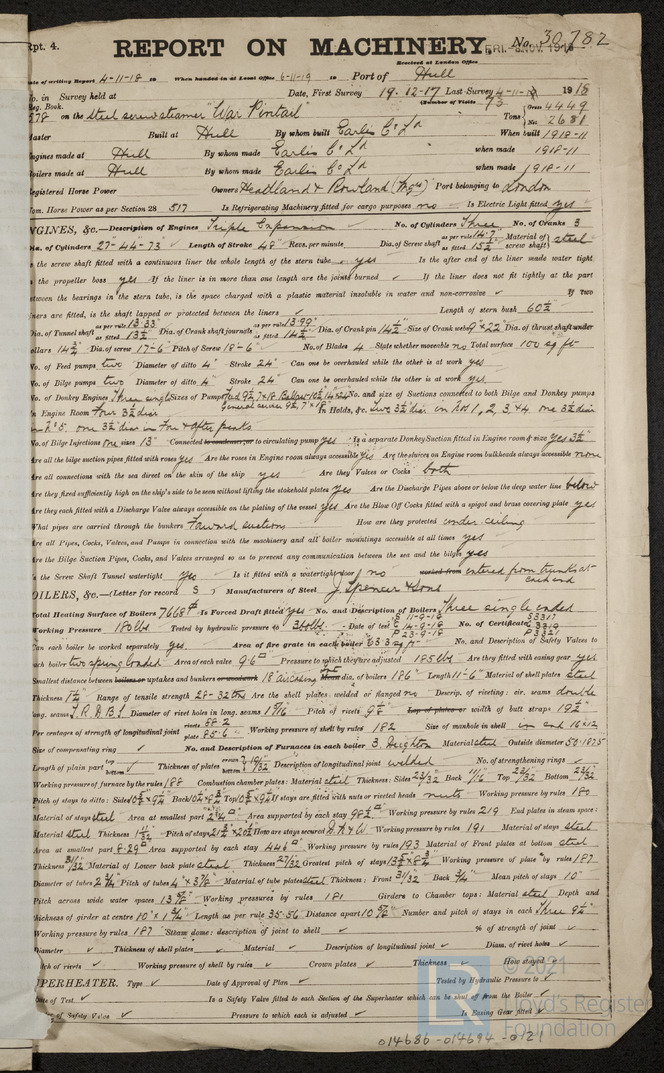 Rpt. 4.
REPORT ON MACHINERY.
No. 30782
Received at London Office
Date of writing Report 4-11-18 19 When handed in at Local Office 6-11-19 19 Port of Hull
No. in Survey held at Date, First Survey 19.12-17 Last Survey 4-11-18 1918
Reg. Book. (Number of Visits 73
578 on the Steel screw steamer "War Pintail" Tons { Gross 4449
Net 2681
Master Built at Hull By whom built Earles Co Ld When built 1918-11
Engines made at Hull By whom made Earles Co Ld when made 1918-11
Boilers made at Hull By whom made Earles Co Ld when made 1918-11
Registered Horse Power Owners Headland & Rowland (Mgrs) Port belonging to London
Nom. Horse Power as per Section 28 517 Is Refrigerating Machinery fitted for cargo purposes no Is Electric Light fitted yes
ENGINES, &c.—Description of Engines Triple Expansion No. of Cylinders Three No. of Cranks 3
Dia. of Cylinders 27-44-73 Length of Stroke 48" Revs. per minute Dia. of Screw shaft as per rule 14.7 as fitted 15½ Material of screw shaft steel
Is the screw shaft fitted with a continuous liner the whole length of the stern tube yes Is the after end of the liner made water tight
in the propeller boss yes If the liner is in more than one length are the joints burned ✓ If the liner does not fit tightly at the part
between the bearings in the stern tube, is the space charged with a plastic material insoluble in water and non-corrosive ✓ If two
liners are fitted, is the shaft lapped or protected between the liners ✓ Length of stern bush 60½"
Dia. of Tunnel shaft as per rule 13.33" as fitted 13½" Dia. of Crank shaft journals as per rule 13.99" as fitted 14½" Dia. of Crank pin 14½" Size of Crank webs 9"x22" Dia. of thrust shaft under
collars 14¾" Dia. of screw 17-6" Pitch of Screw 18-6" No. of Blades 4 State whether moveable no Total surface 100 sq ft
No. of Feed pumps two Diameter of ditto 4" Stroke 24" Can one be overhauled while the other is at work yes
No. of Bilge pumps two Diameter of ditto 4" Stroke 24" Can one be overhauled while the other is at work yes
No. of Donkey Engines Three Sizes of Pumps No. and size of Suctions connected to both Bilge and Donkey pumps
In Engine Room Four 3½ dia In Holds, &c. two 3½ dia in Nos 1, 2, 3, & 4. one 3½ dia
in No 5. one 3½ dia in Fore & after peaks
No. of Bilge Injections one sizes 13" Connected to condenser, or to circulating pump yes Is a separate Donkey Suction fitted in Engine room & size yes 3½"
Are all the bilge suction pipes fitted with roses yes Are the roses in Engine room always accessible yes Are the sluices on Engine room bulkheads always accessible none
Are all connections with the sea direct on the skin of the ship yes Are they Valves or Cocks both
Are they fixed sufficiently high on the ship's side to be seen without lifting the stokehold plates yes Are the Discharge Pipes above or below the deep water line below
Are they each fitted with a Discharge Valve always accessible on the plating of the vessel yes Are the Blow Off Cocks fitted with a spigot and brass covering plate yes
What pipes are carried through the bunkers Forward suctions How are they protected under ceiling
Are all Pipes, Cocks, Valves, and Pumps in connection with the machinery and all boiler mountings accessible at all times yes
Are the Bilge Suction Pipes, Cocks, and Valves arranged so as to prevent any communication between the sea and the bilges yes
Is the Screw Shaft Tunnel watertight yes Is it fitted with a watertight door no worked from entered from trunks at
each end
BOILERS, &c.—(Letter for record S ) Manufacturers of Steel J Spencer & Sons
Total Heating Surface of Boilers 7668 Is Forced Draft fitted yes No. and Description of Boilers Three single ended
Working Pressure 180 lbs Tested by hydraulic pressure to Date of test S 11-9-18 C 14-9-18 P 23-9-18 No. of Certificate S3317 3319 P3321
Can each boiler be worked separately yes Area of fire grate in each boiler 63.3 sq ft No. and Description of Safety Valves to
each boiler two spring loaded Area of each valve 9.6 Pressure to which they are adjusted 185 lbs Are they fitted with easing gear yes
Smallest distance between boilers or uptakes and bunkers or woodwork 18" Mean dia. of boilers 186" Length 11-6" Material of shell plates steel
Thickness 1¼" Range of tensile strength 28-32 tons Are the shell plates welded or flanged no Descrip. of riveting: cir. seams double
long. seams T.R.D.B.S Diameter of rivet holes in long. seams 1 5/16" Pitch of rivets 9¼" Lap of plates or width of butt straps 19½"
Per centages of strength of longitudinal joint rivets 88.2 plate 85.6 Working pressure of shell by rules 182 Size of manhole in shell in end 16x12
Size of compensating ring ✓ No. and Description of Furnaces in each boiler 3. Deighton Material steel Outside diameter 50.1875
Length of plain part top bottom Thickness of plates crown bottom 19/32 Description of longitudinal joint welded No. of strengthening rings ✓
Working pressure of furnace by the rules 188 Combustion chamber plates: Material steel Thickness: Sides 23/32 Back 11/16 Top 23/32 Bottom 23/32
Pitch of stays to ditto: Sides Back Top If stays are fitted with nuts or riveted heads nuts Working pressure by rules 180
Material of stays steel Area at smallest part Area supported by each stay 98½ Working pressure by rules 219 End plates in steam space:
Material steel Thickness 1 1/32 Pitch of stays How are stays secured D.N & W. Working pressure by rules 191 Material of stays steel
Area at smallest part 8.29 Area supported by each stay 446 Working pressure by rules 193 Material of Front plates at bottom steel
Thickness 31/32 Material of Lower back plate steel Thickness 27/32 Greatest pitch of stays Working pressure of plate by rules 187
Diameter of tubes 2¾" Pitch of tubes 4"x3⅞" Material of tube plates steel Thickness: Front 31/32 Back ¾" Mean pitch of stays 10"
Pitch across wide water spaces 13⅝" Working pressures by rules 181 Girders to Chamber tops: Material steel Depth and
thickness of girder at centre 10"x1¾" Length as per rule 35.56 Distance apart 10⅝" Number and pitch of stays in each Three 9¼"
Working pressure by rules 187 Steam dome: description of joint to shell ✓ % of strength of joint ✓
Diameter ✓ Thickness of shell plates ✓ Material ✓ Description of longitudinal joint ✓ Diam. of rivet holes ✓
Pitch of rivets ✓ Working pressure of shell by rules ✓ Crown plates ✓ Thickness ✓ How stayed ✓
SUPERHEATER. Type ✓ Date of Approval of Plan ✓ Tested by Hydraulic Pressure to ✓
Date of Test ✓ Is a Safety Valve fitted to each Section of the Superheater which can be shut off from the Boiler ✓
Diam. of Safety Valve ✓ Pressure to which each is adjusted ✓ Is Easing Gear fitted ✓
© 2021
Lloyd's Register
Foundation
014686-014694-0121